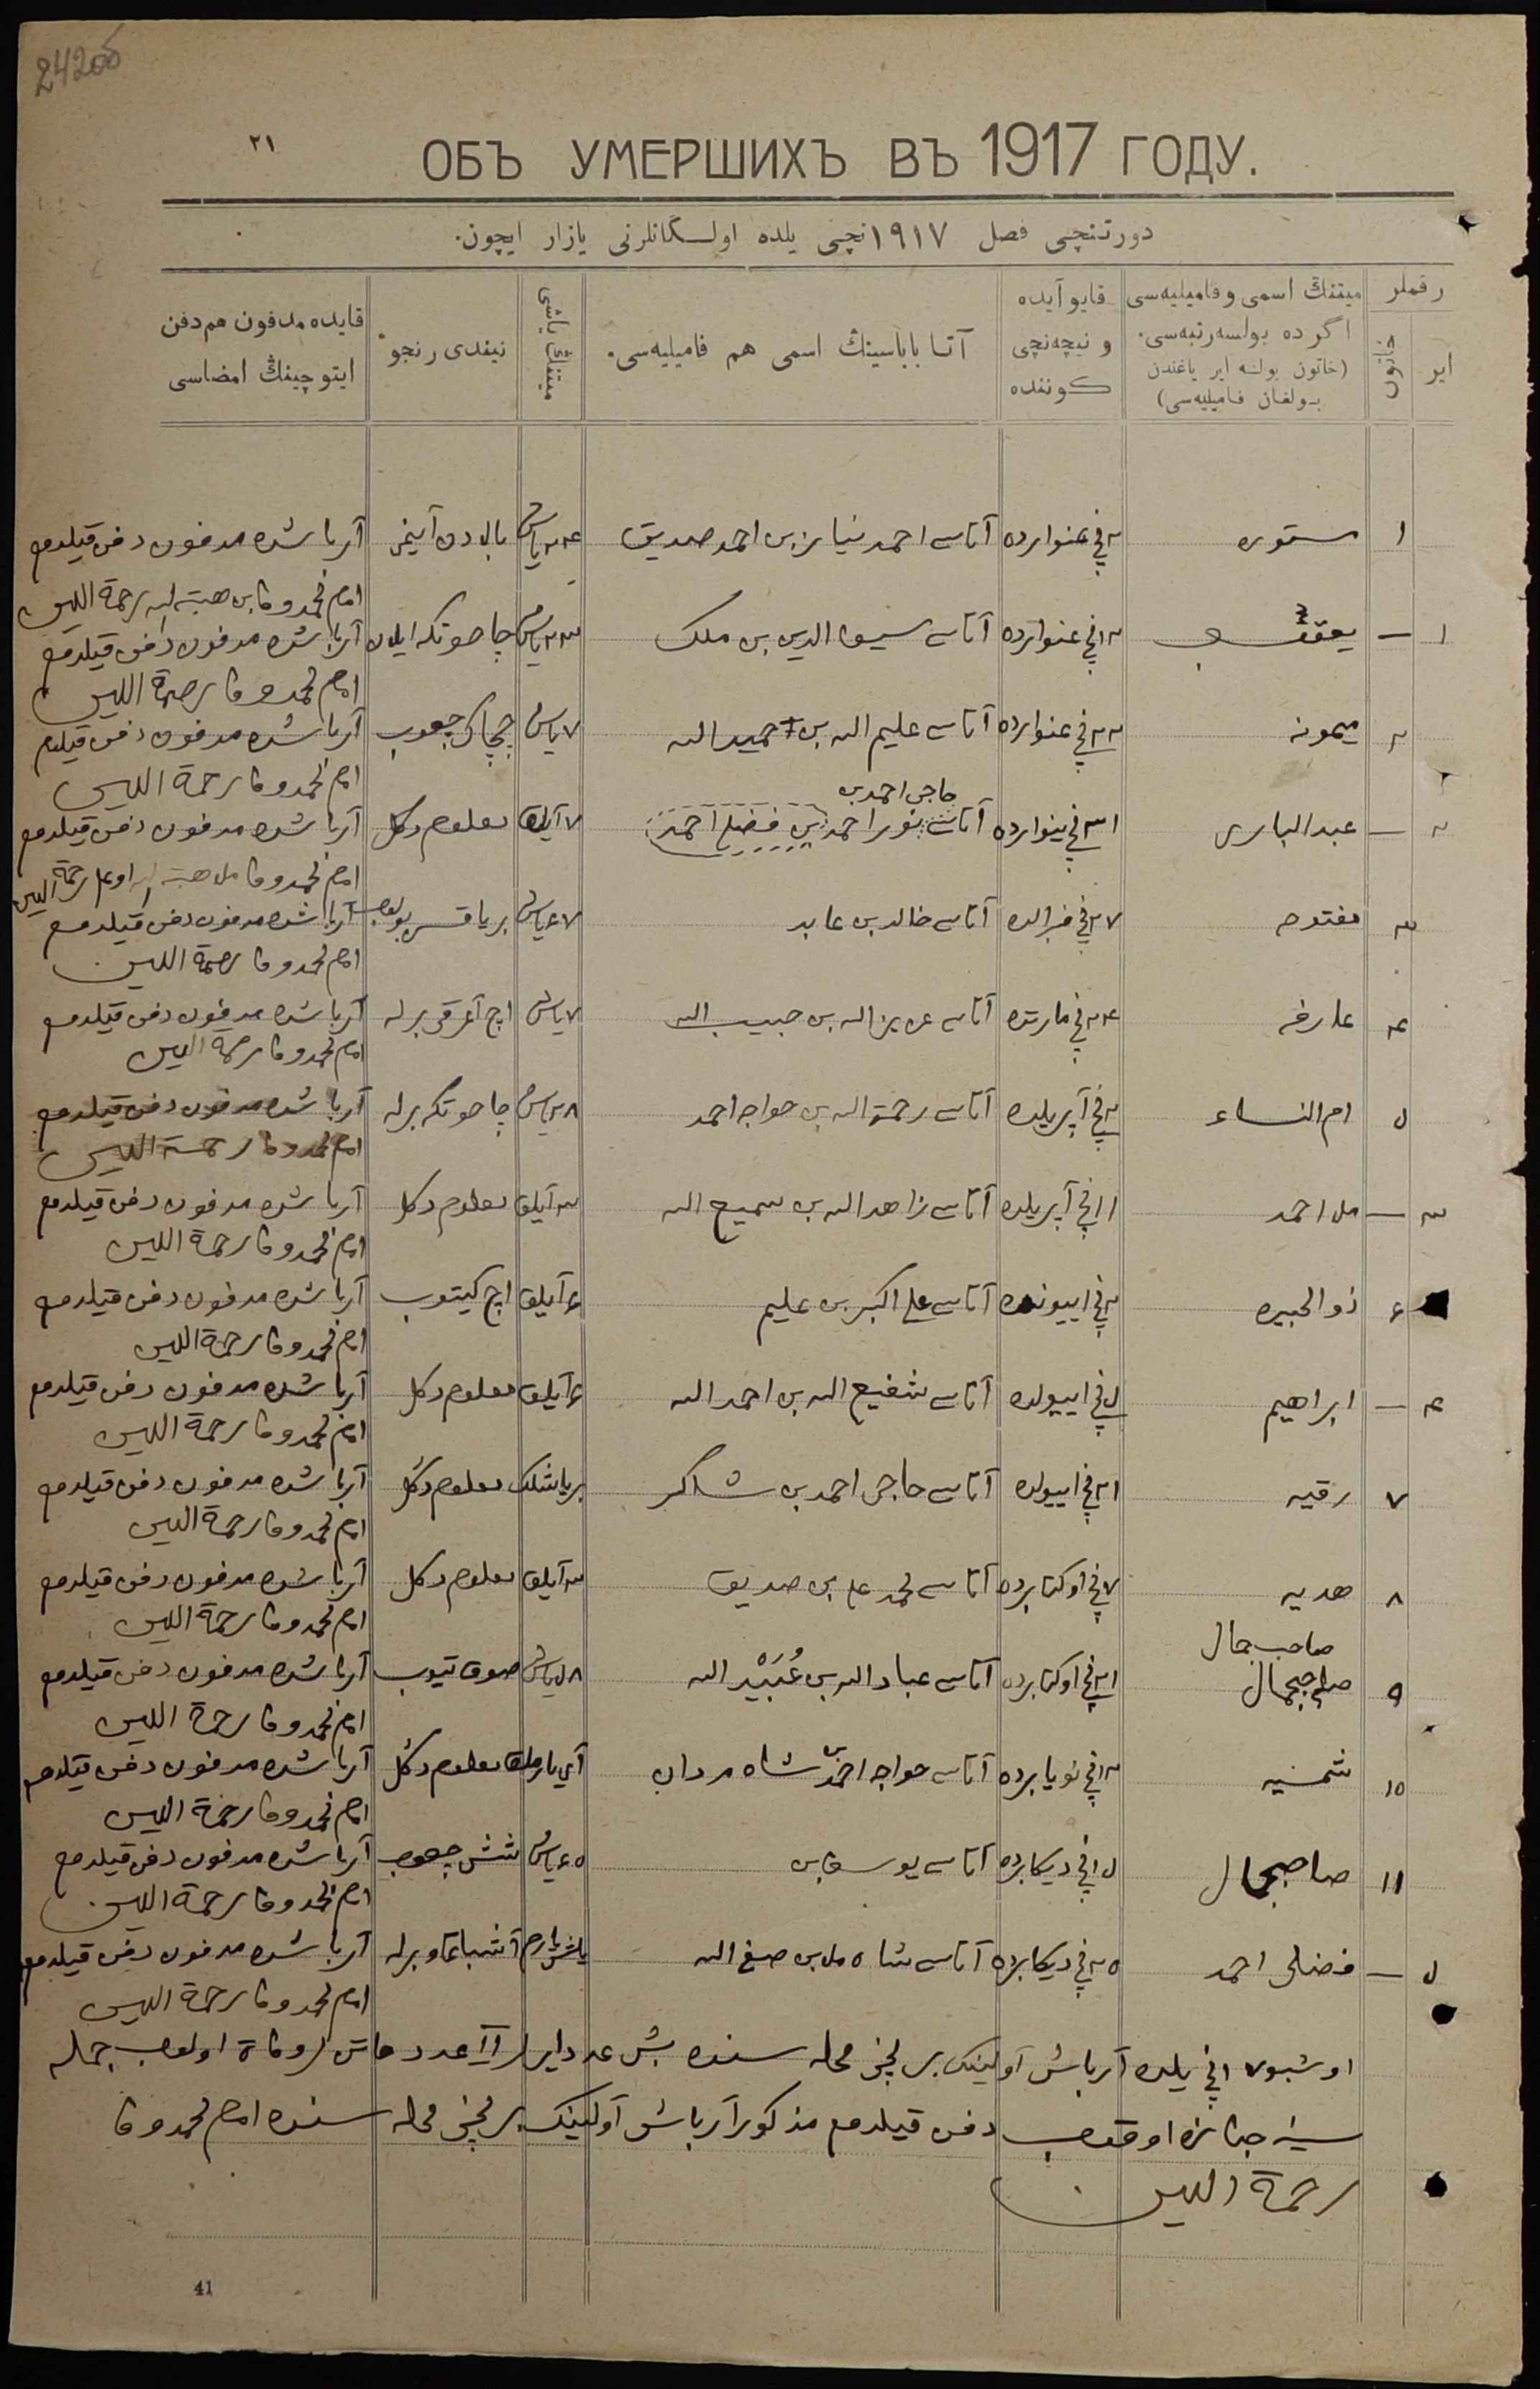 242об
٢١
ОБЪ УМЕРШИХЪ ВЪ 1917 ГОДУ.
دورتنچی فصل ١٩١٧نچی یلده اولـگانلرنی یازار ایچون.
رقملر
ایر
خاتون
میتنڭ اسمی و فامیلیه‌سی
اگر ده بولسه رتبه‌سی.
(خاتون بولسه ایر یاغندن
بولغان فامیلیه‌سی)
قایو آیده
و نیچه‌نچی
کوننده
آتا باباسینڭ اسمی هم فامیلیه‌سی.
میتنڭ یاشی
نیندی رنجو
قایده مدفون هم دفن
ایتوچینڭ امضاسی
١ مستوره ٢نچی غنوارده آتاسی احمد نیاز بن احمد صدیق ٢٤ یاش بالادن آرباشده مدفون دفن قیلدم
امام محمد وفا بن هبة الله رحمة اللهین
١ — یعقوب ١٢نچی غنوارده آتاسی سیف الدین بن ملک ٢٣ یاش چاحوتکه ایلان آرباشده مدفون دفن قیلدم
امام محمد وفا رحمة اللهین
٢ میمونه ٢٢نچی غنوارده آتاسی علیم الله بن حمید الله ٧ یاش چچاک چغوب آرباشده مدفون دفن قیلدم
امام محمد وفا رحمة اللهین
حاجی احمد بن
٢ — عبد الباری ٣١نچی ینوارده آتاسی نور احمد بن فضلی احمد ٧ آیلق معلوم دکل آرباشده مدفون دفن قیلدم
امام محمد وفا رحمة اللهین
٣ مفتوحه ٢٧نچی فبرالده آتاسی خالد بن عابد ٦٧ یاش بولوب آرباشده مدفون دفن قیلدم
امام محمد وفا رحمة اللهین
٤ عارفه ٢٤نچی مارتده آتاسی عزیز الله بن حبیب الله ٧ یاش اچ آغرقی برله آرباشده مدفون دفن قیلدم
امام محمد وفا رحمة اللهین
٥ ام النساء ٢نچی آپریلده آتاسی رحمة الله بن خواجه احمد چاحوتکه برله آرباشده مدفون دفن قیلدم
امام محمد وفا رحمة اللهین
٣ — احمد ١١نچی آپریلده آتاسی زاهد الله بن سمیع الله ٣ آیلق معلوم دکل آرباشده مدفون دفن قیلدم
امام محمد وفا رحمة اللهین
٦ ذو الحبیره ٢نچی اییونده آتاسی علی اکبر بن علیم ٦ آیلق اچ کیتوب آرباشده مدفون دفن قیلدم
امام محمد وفا رحمة اللهین
٤ — ابراهیم ٥نچی اییولده آتاسی شفیع الله بن احمد الله ٦ آیلق معلوم دکل آرباشده مدفون دفن قیلدم
امام محمد وفا رحمة اللهین
٧ رقیه ٢١نچی اییولده آتاسی حاجی احمد بن شاکر بر یاشلک معلوم دکل آرباشده مدفون دفن قیلدم
امام محمد وفا رحمة اللهین
٨ هدیه ٧نچی اوکتابرده آتاسی محمد علی بن صدیق ٣ آیلق معلوم دکل آرباشده مدفون دفن قیلدم
امام محمد وفا رحمة اللهین
صاحب جمال
٩ صاحبجمال ٢١نچی اوکتابرده آتاسی عباد الله بن عُبَیْد الله ٥٨ یاش صوق تیوب آرباشده مدفون دفن قیلدم
امام محمد وفا رحمة اللهین
١٠ شمسیه ١٢نچی نویابرده آتاسی خواجه احمد بن شاه مردان آی یارملق معلوم دکل آرباشده مدفون دفن قیلدم
امام محمد وفا رحمة اللهین
١١ صاحبجمال ١٥نچی دیکابرده آتاسی یوسف بن ٦٥ یاش شش چغوب آرباشده مدفون دفن قیلدم
امام محمد وفا رحمة اللهین
٥ — فضلی احمد ٢٥نچی دیکابرده آتاسی شاه بن صفی الله یاش یارم برله آرباشده مدفون دفن قیلدم
امام محمد وفا رحمة اللهین
اوشبو ١٧نچی یلده آرباش آولینک برنچی محله سنده بش عدد ایر ١١ عدد خاتن وفات اولوب جمله
سینه جنازه اوقوب دفن قیلدم مذکور آرباش آولینک برنچی محله سنده امام محمد وفا
رحمة اللهین
41